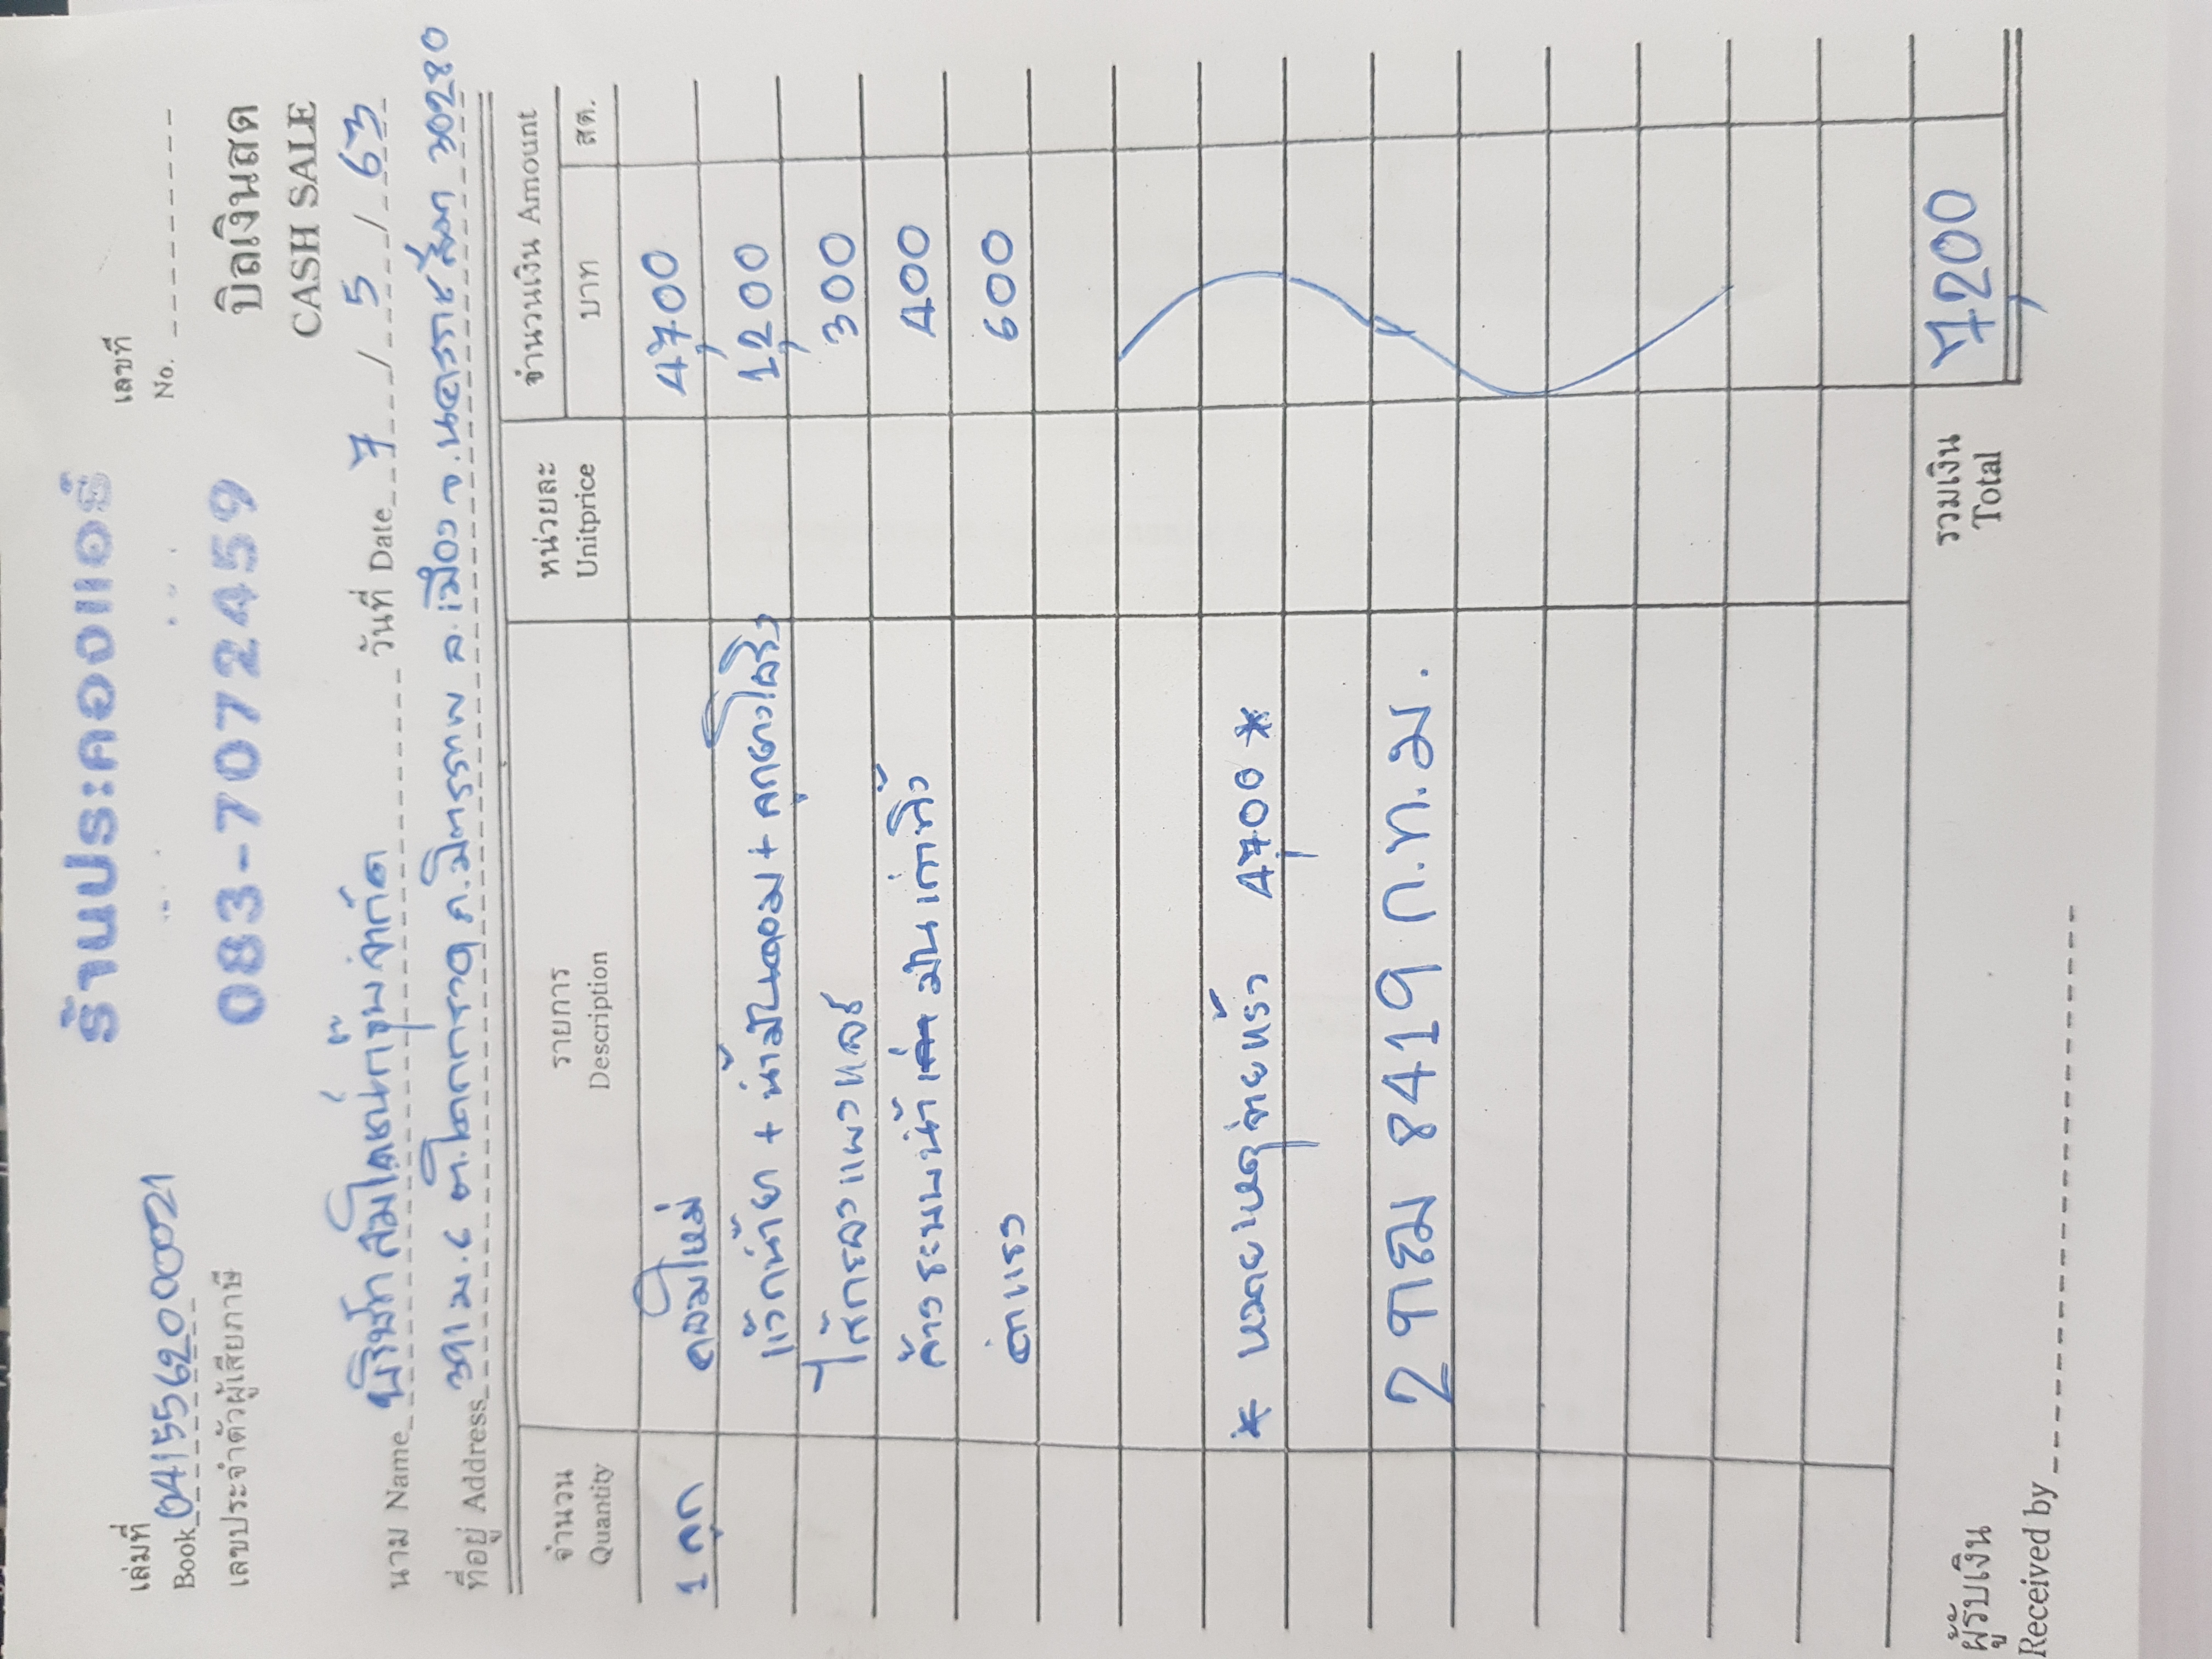 ร้านประคองแอร์
083-7072459
เล่มที่
Book 0415562000021
เลขประจำตัวผู้เสียภาษี
เลขที่
No.
บิลเงินสด
CASH SALE
นาม Name บริษัท สมโตชน์กรุ๊บ จำกัด วันที่ Date 7 / 5 / 63
ที่อยู่ Address ม.6 ต.โคกกรวด ถ.มิตรภาพ อ.เมือง จ.นครราชสีมา 30280
จำนวน Quantity รายการ Description หน่วยละ Unitprice จำนวนเงิน Amount
บาท สต.
1 ลูก คอมใหม่ 4,700
แว๊กน้ำยา + น้ำมันคอม + 1,200
ไส้กรอง 300
ล้างระบบน้ำ มันเก่าทิ้ง 400
ค่าแรง 600
* หมายเหตุจ่ายแล้ว 4,700 *
2 ฒม 8419 ก.ท.ม.
รวมเงิน Total 7,200
ผู้รับเงิน
Received by